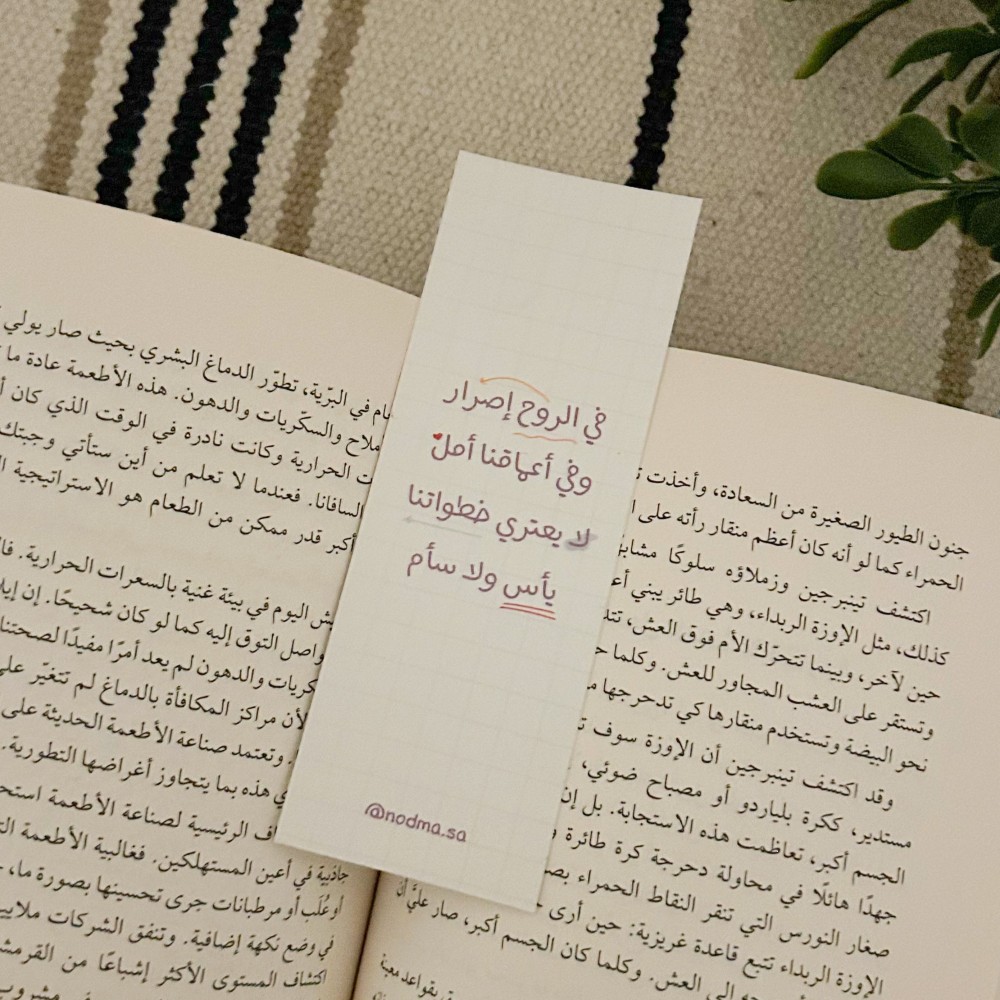 في الروح إصرار
وفي أعماقنا أمل
لا يعتري خطواتنا
يأس ولا سأم
@nodma.sa
جنون الطيور الصغيرة من السعادة، وأخذت
الحمراء كما لو أنه كان أعظم منقار رأته على
اكتشف تينبرجين وزملاؤه سلوكًا
كذلك، مثل الإوزة الربداء، وهي طائر يبني
حين لآخر، وبينما تتحرّك الأم فوق العش،
وتستقر على العشب المجاور للعش. وكلما
نحو البيضة وتستخدم منقارها كي تدحرجها
وقد اكتشف تينبرجين أن الإوزة سوف
مستدير، ككرة بلياردو أو مصباح ضوئي،
الجسم أكبر، تعاظمت هذه الاستجابة. بل إن
جهدًا هائلًا في محاولة دحرجة كرة طائرة
صغار النورس التي تنقر النقاط الحمراء
الإوزة الربداء تتبع قاعدة غريزية: حين أرى
إلى العش. وكلما كان الجسم أكبر، صار عليَّ أن
بقواعد معينة
في البرّية، تطوّر الدماغ البشري بحيث صار يولي
والسكّريات والدهون. هذه الأطعمة عادة ما
الحرارية وكانت نادرة في الوقت الذي كان
السافانا. فعندما لا تعلم من أين ستأتي وجبتك
أكبر قدر ممكن من الطعام هو الاستراتيجية
اليوم في بيئة غنية بالسعرات الحرارية.
التوق إليه كما لو كان شحيحًا. إن
والدهون لم يعد أمرًا مفيدًا لصحتنا
لأن مراكز المكافأة بالدماغ لم تتغيّر
وتعتمد صناعة الأطعمة الحديثة على
هذه بما يتجاوز أغراضها التطورية.
الرئيسية لصناعة الأطعمة
جاذبية في أعين المستهلكين. فغالبية الأطعمة
أو عُلَب أو مرطبانات جرى تحسينها بصورة ما،
في وضع نكهة إضافية. وتنفق الشركات
اكتشاف المستوى الأكثر إشباعًا من